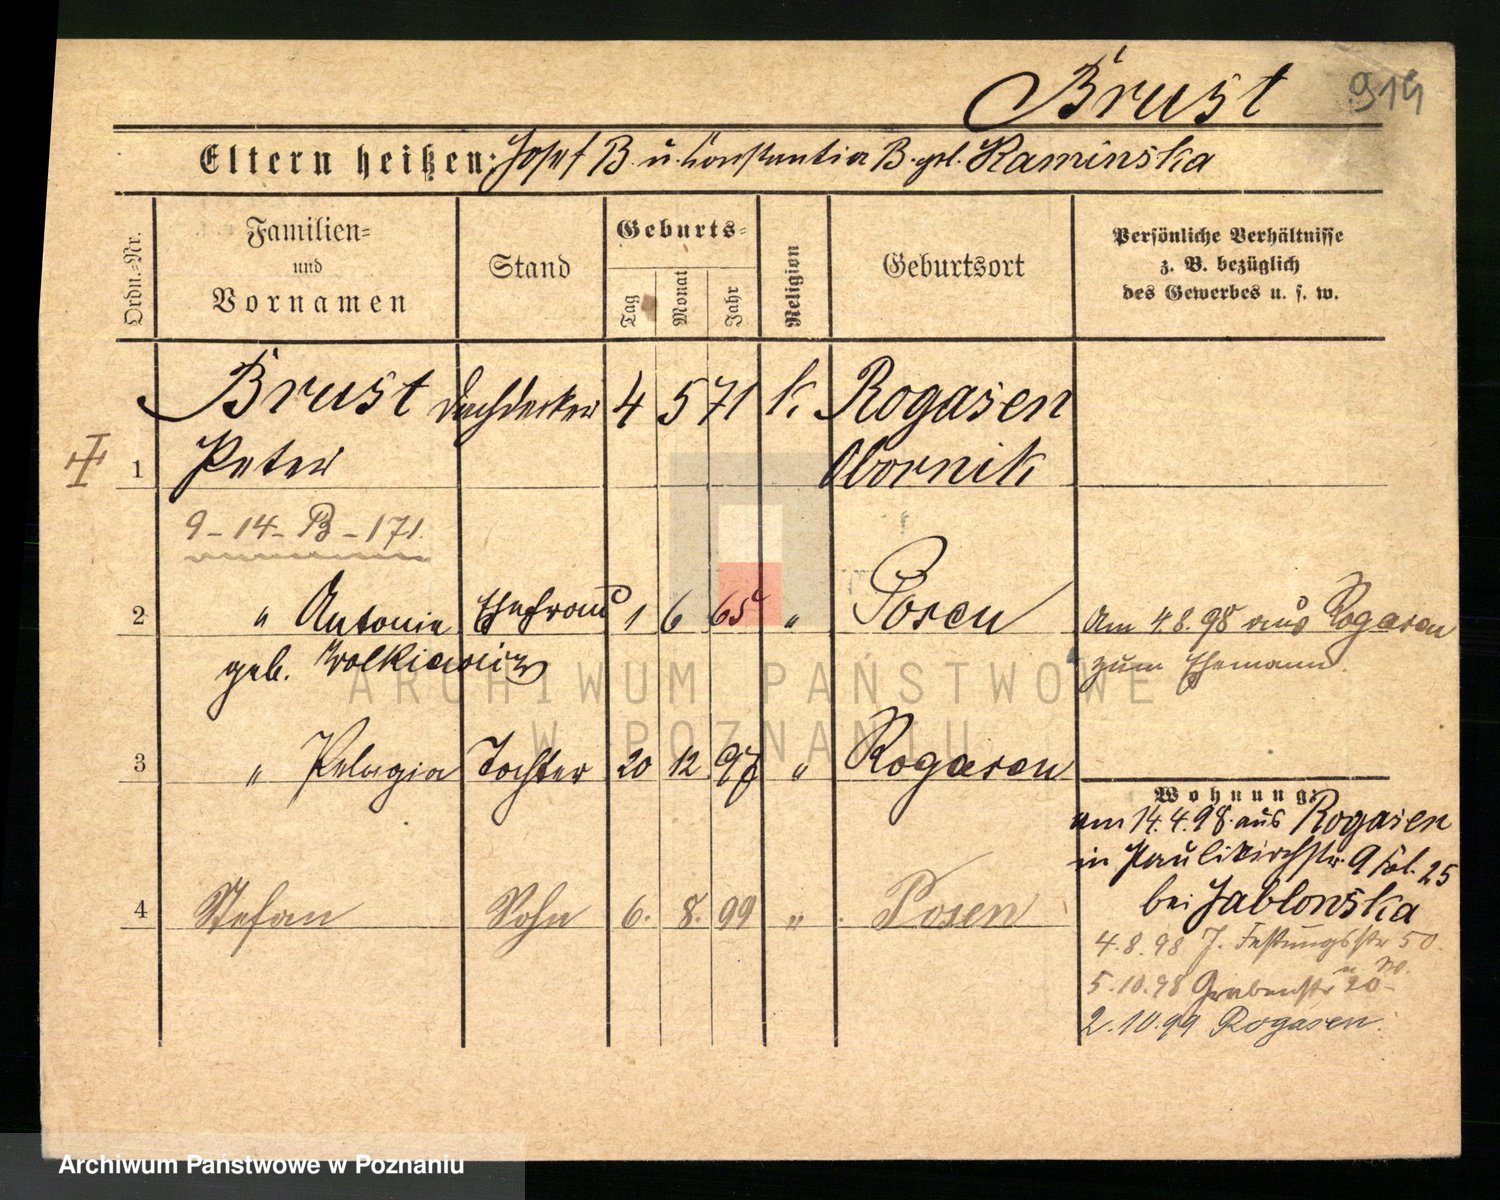 Brust 919
Eltern heißen: Josef B u. Konstantia B. geb. Kaminska
Ordn.-Nr.
Familien-
und
Vornamen
Stand
Geburts-
Tag
Monat
Jahr
Religion
Geburtsort
Persönliche Verhältnisse
z. B. bezüglich
des Gewerbes u. s. w.
Brust Dachdecker 4 5 71 k. Rogasen
1 Peter Obornik
9-14-B-171.
2 " Antonie Ehefrau 1 6 65 " Posen Am 4.8.98 aus Rogasen
geb. Wolkiewicz zum Ehemann.
3 " Pelagia Tochter 20 12 97 " Rogasen
Wohnung:
am 14.4.98 aus Rogasen
in Paulikirchstr. 9 Fol. 25
bei Jablonska
4 Stefan Sohn 6. 8. 99 " Posen
4.8.98 J. Festungsstr 50.
5.10.98 Grabenstr 20
2.10.99 Rogasen.
ARCHIWUM PAŃSTWOWE
W POZNANIU
Archiwum Państwowe w Poznaniu